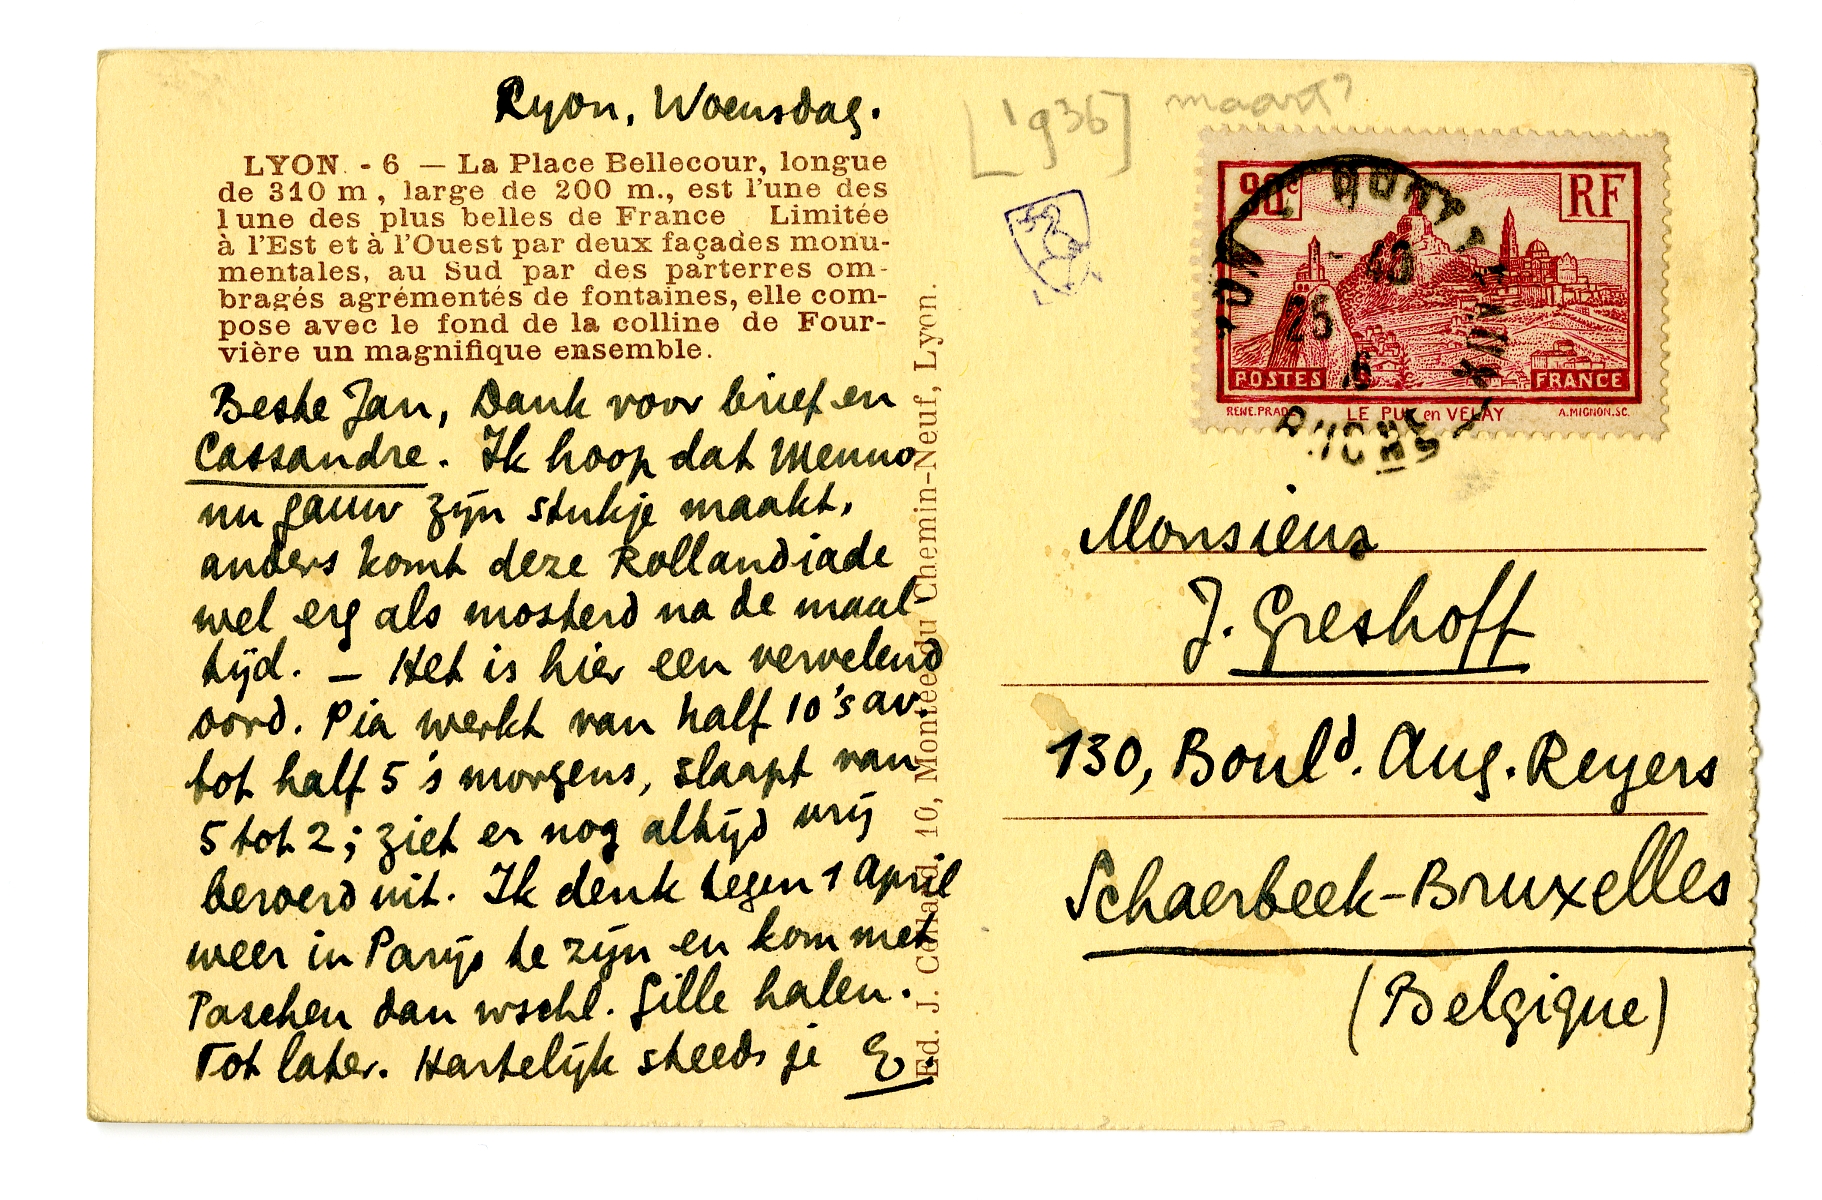 Lyon, Woensdag.
LYON - 6 — La Place Bellecour, longue
de 310 m, large de 200 m., est l'une des
lune des plus belles de France Limitée
à l'Est et à l'Ouest par deux façades monu-
mentales, au Sud par des parterres om-
bragés agrémentés de fontaines, elle com-
pose avec le fond de la colline de Four-
vière un magnifique ensemble.
Beste Jan, Dank voor brief en
Cassandre. Ik hoop dat Menno
nu gauw zijn stukje maakt,
anders komt deze Rollandiade
wel erg als mosterd na de maal-
tijd. — Het is hier een vervelend
oord. Pia werkt van half 10 's av.
tot half 5 's morgens, slaapt van
5 tot 2; ziet er nog altijd vrij
beroerd uit. Ik denk tegen 1 April
weer in Parijs te zijn en kom met
Paschen dan wschl. Gille halen.
Tot later. Hartelijk steeds je E.
Ed. J. Cellard, 10, Montée du Chemin-Neuf, Lyon.
[1936] maart?
90c
RF
POSTES
FRANCE
LE PUY en VELAY
A.MIGNON.SC.
25
RHONE
Monsieur
J. Greshoff
130, Bould. Aug. Reyers
Schaerbeek-Bruxelles
(Belgique)